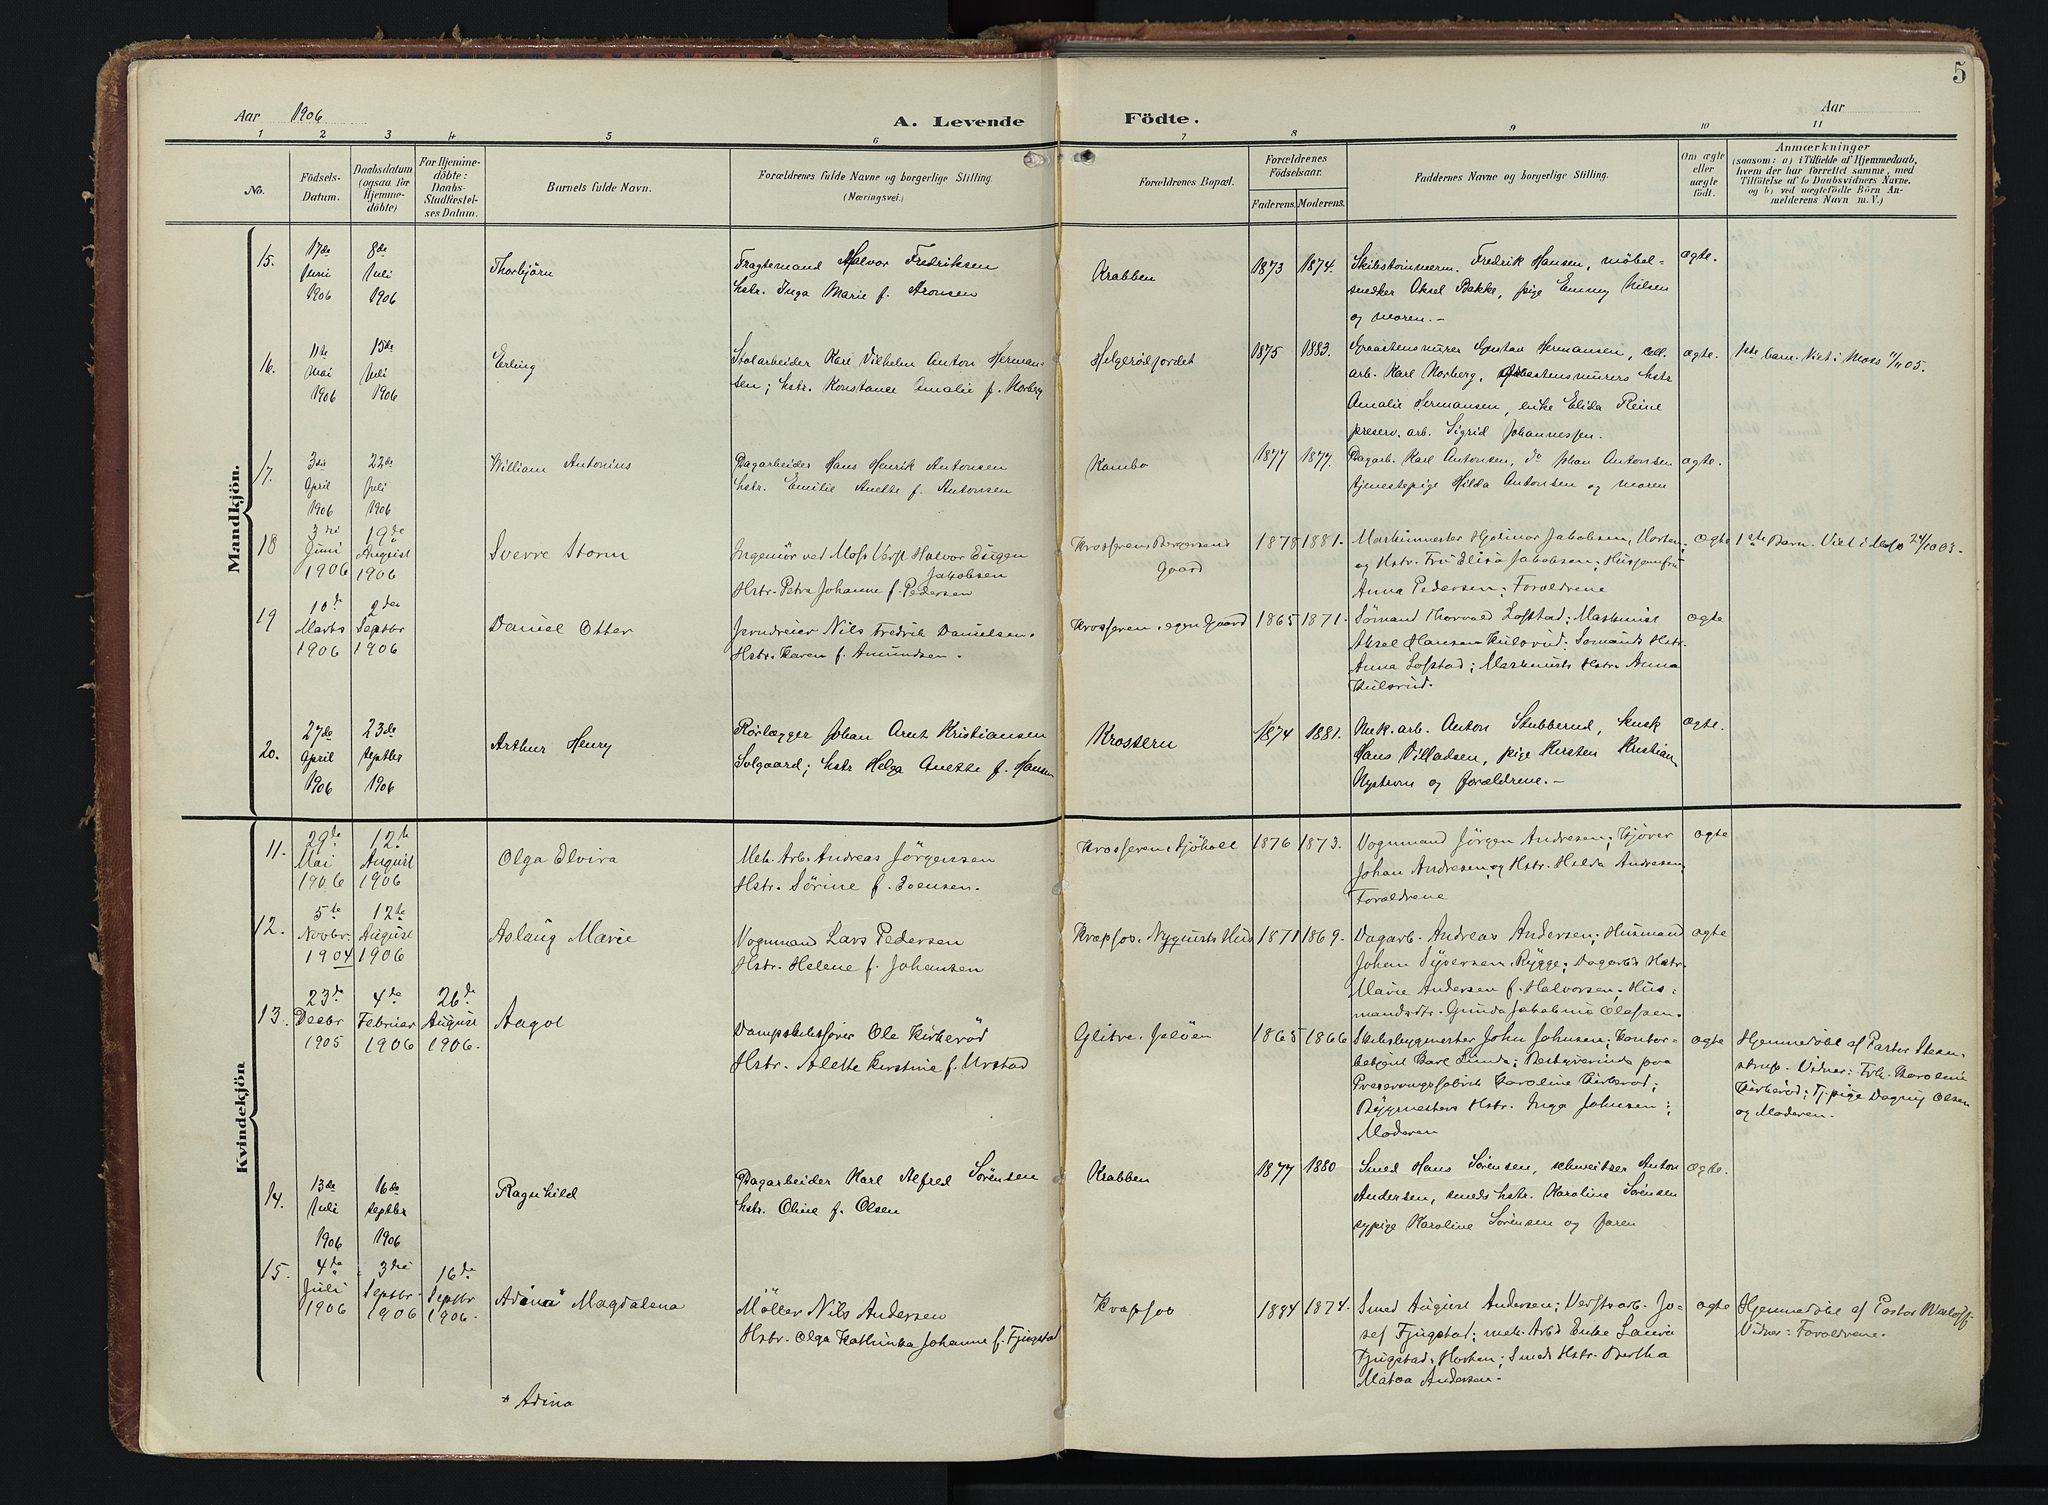 5
Aar 1906
A. Levende Födte.
Aar
1 2 3 4 5 6 7 8 9 10 11
No.
Födsels-Datum.
Daabsdatum (ogsaa for Hjemmedöbte)
For Hjemmedöbte: Daabs-Stadfæstelses Datum.
Barnets fulde Navn.
Forældrenes fulde Navne og borgerlige Stilling (Næringsvei.)
Forældrenes Bopæl.
Forældrenes Födselsaar.
Faderens. Moderens.
Faddernes Navne og borgerlige Stilling.
Om ægte eller uægte födt.
Anmærkninger
(saasom: a) i Tilfælde af Hjemmedaab, hvem der har forrettet samme, med Tilföielse af to Daabsvidners Navne, og b) ved uægtefödte Börn Anmelderens Navn m. V.)
Mandkjön.
15. 17de Juni 1906 8de Juli 1906 Thorbjörn
Fragtemand Halvor Fredriksen
hstr. Inga Marie f. Aronsen
Krabben 1873 1874.
Skibstømmerm. Fredrik Hansen, møbel-
snedker Aksel Bakke, pige Emmy Nilsen
og moren.-
ægte.
16. 11te Mai 1906 15de Juli 1906 Erling
Stolarbeider Karl Vilhelm Anton Herman-
sen; hstr. Konstance Amalie f. Norberg
Helgerødjordet 1875 1883.
Graastensmurer Gustav Hermansen, cell.
arb. Karl Norberg, graastensmurers hstr
Amalie Hermansen, enke Elida Reine
preserv. arb. Sigrid Johannessen.
ægte.
1ste barn. Viet i Moss 11/11 05.
17. 3die April 1906 22de Juli 1906 William Antonius
Dagarbeider Hans Henrik Antonsen
hstr. Emilie Anette f. Antonsen
Kambo 1877 1877.
Dagarb. Karl Antonsen, do Johan Antonsen
tjenestepige Hilda Antonsen og moren
ægte.
18 3die Juni 1906 19de August 1906 Sverre Storm
Ingeniør ved Moss Værft Halvor Eugen
Jakobsen
Hstr. Petra Johanne f. Pedersen
Krosseren, Bergersens
Gaard
1878 1881.
Maskinmester Hjalmar Jakobsen, Horten;
og Hstr. Fru Elisa Jakobsen; Husjomfru
Anna Pedersen; Forældrene
ægte
1ste Barn. Viet i Moss 24/10 03.
19 10de Marts 1906 2den Septbr 1906 Daniel Otter
Jerndreier Nils Fredrik Danielsen.
Hstr. Karen f. Amundsen.
Krosseren, egen Gaard 1865 1871.
Sömand Thorvald Lofstad; Maskinist
Aksel Hansen Kulsrud; Sömands Hstr.
Anna Lofstad; Maskinists Hstr. Anna
Kulsrud.
ægte
20. 27de April 1906 23de septbr 1906 Arthur Henry
Rörlægger Johan Arnt Kristiansen
Solgaard; hstr Helga Anette f. Hansen
Krossern 1874 1881.
Mek. arb. Anton Stubberud, kusk
Hans Villadsen, pige Kirsten Kristian
Nystrom og forældrene.-
ægte.
Kvindekjön
11. 29de Mai 1906 12te August 1906 Olga Elvira
Mek. Arb. Andreas Jörgensen
Hstr. Sörine f. Evensen.
Krosseren, Sjöhall 1876 1873.
Vognmand Jörgen Andresen; Kjörer
Johan Andresen, og Hstr. Hilda Andresen;
Forældrene
ægte
12. 5te Novbr. 1904 12te August 1906 Aslaug Marie
Vognmand Lars Pedersen
Hstr. Helene f. Johansen
Kræpsos. Nyquists Hus 1871 1869.
Dagarb. Andreas Andersen; Husmand
Johan Syversen, Rygge; Dagarb's Hstr.
Marie Andersen f. Halvorsen; Hus-
mandsdtr. Gunda Jakobine Olafsen.
ægte
13. 23de Decbr 1905 4de Februar 1906 26de August 1906. Aagot
Dampskibsfører Ole Kirkeröd
Hstr. Alette Kirstine f. Urstad
Glitre, Jelöen 1865 1866
Skibsbygmester John Johnsen; Kontor-
betjent Carl Lunde; Bestyrerinde paa
Preservingsfabrik Karoline Kirkeröd;
Bygmesters Hstr. Inga Johnsen;
Moderen
ægte
Hjemmedöbt af Pastor Steen-
strup. Vidner: Frk. Karoline
Kirkeröd; Tj.pige Dagny Olsen
og Moderen.
14. 13de Juli 1906 16de septbr 1906 Ragnhild
Dagarbeider Karl Alfred Sörensen
hstr. Oline f. Olsen
Krabben 1877 1880
Smed Hans Sörensen, schweitser Anton
Andersen, smeds hstr. Karoline Sörensen
sypige Karoline Sörensen og faren
ægte.
15. 4de Juli 1906 3die Septbr. 1906 16de Septbr 1906. Adina* Magdalena
Möller Nils Andersen
Hstr. Olga Kathinka Johanne f. Fjugstad
Kræpsos 1874 1874.
Smed August Andersen; Verftsarb. Jo-
sef Fjugstad; mek. Arb's Enke Laura
Fjugstad, Horten; Smeds Hstr. Bertha
Matea Andersen.
ægte
Hjemmedöbt af Pastor
Vidner: Forældrene.
* Adina